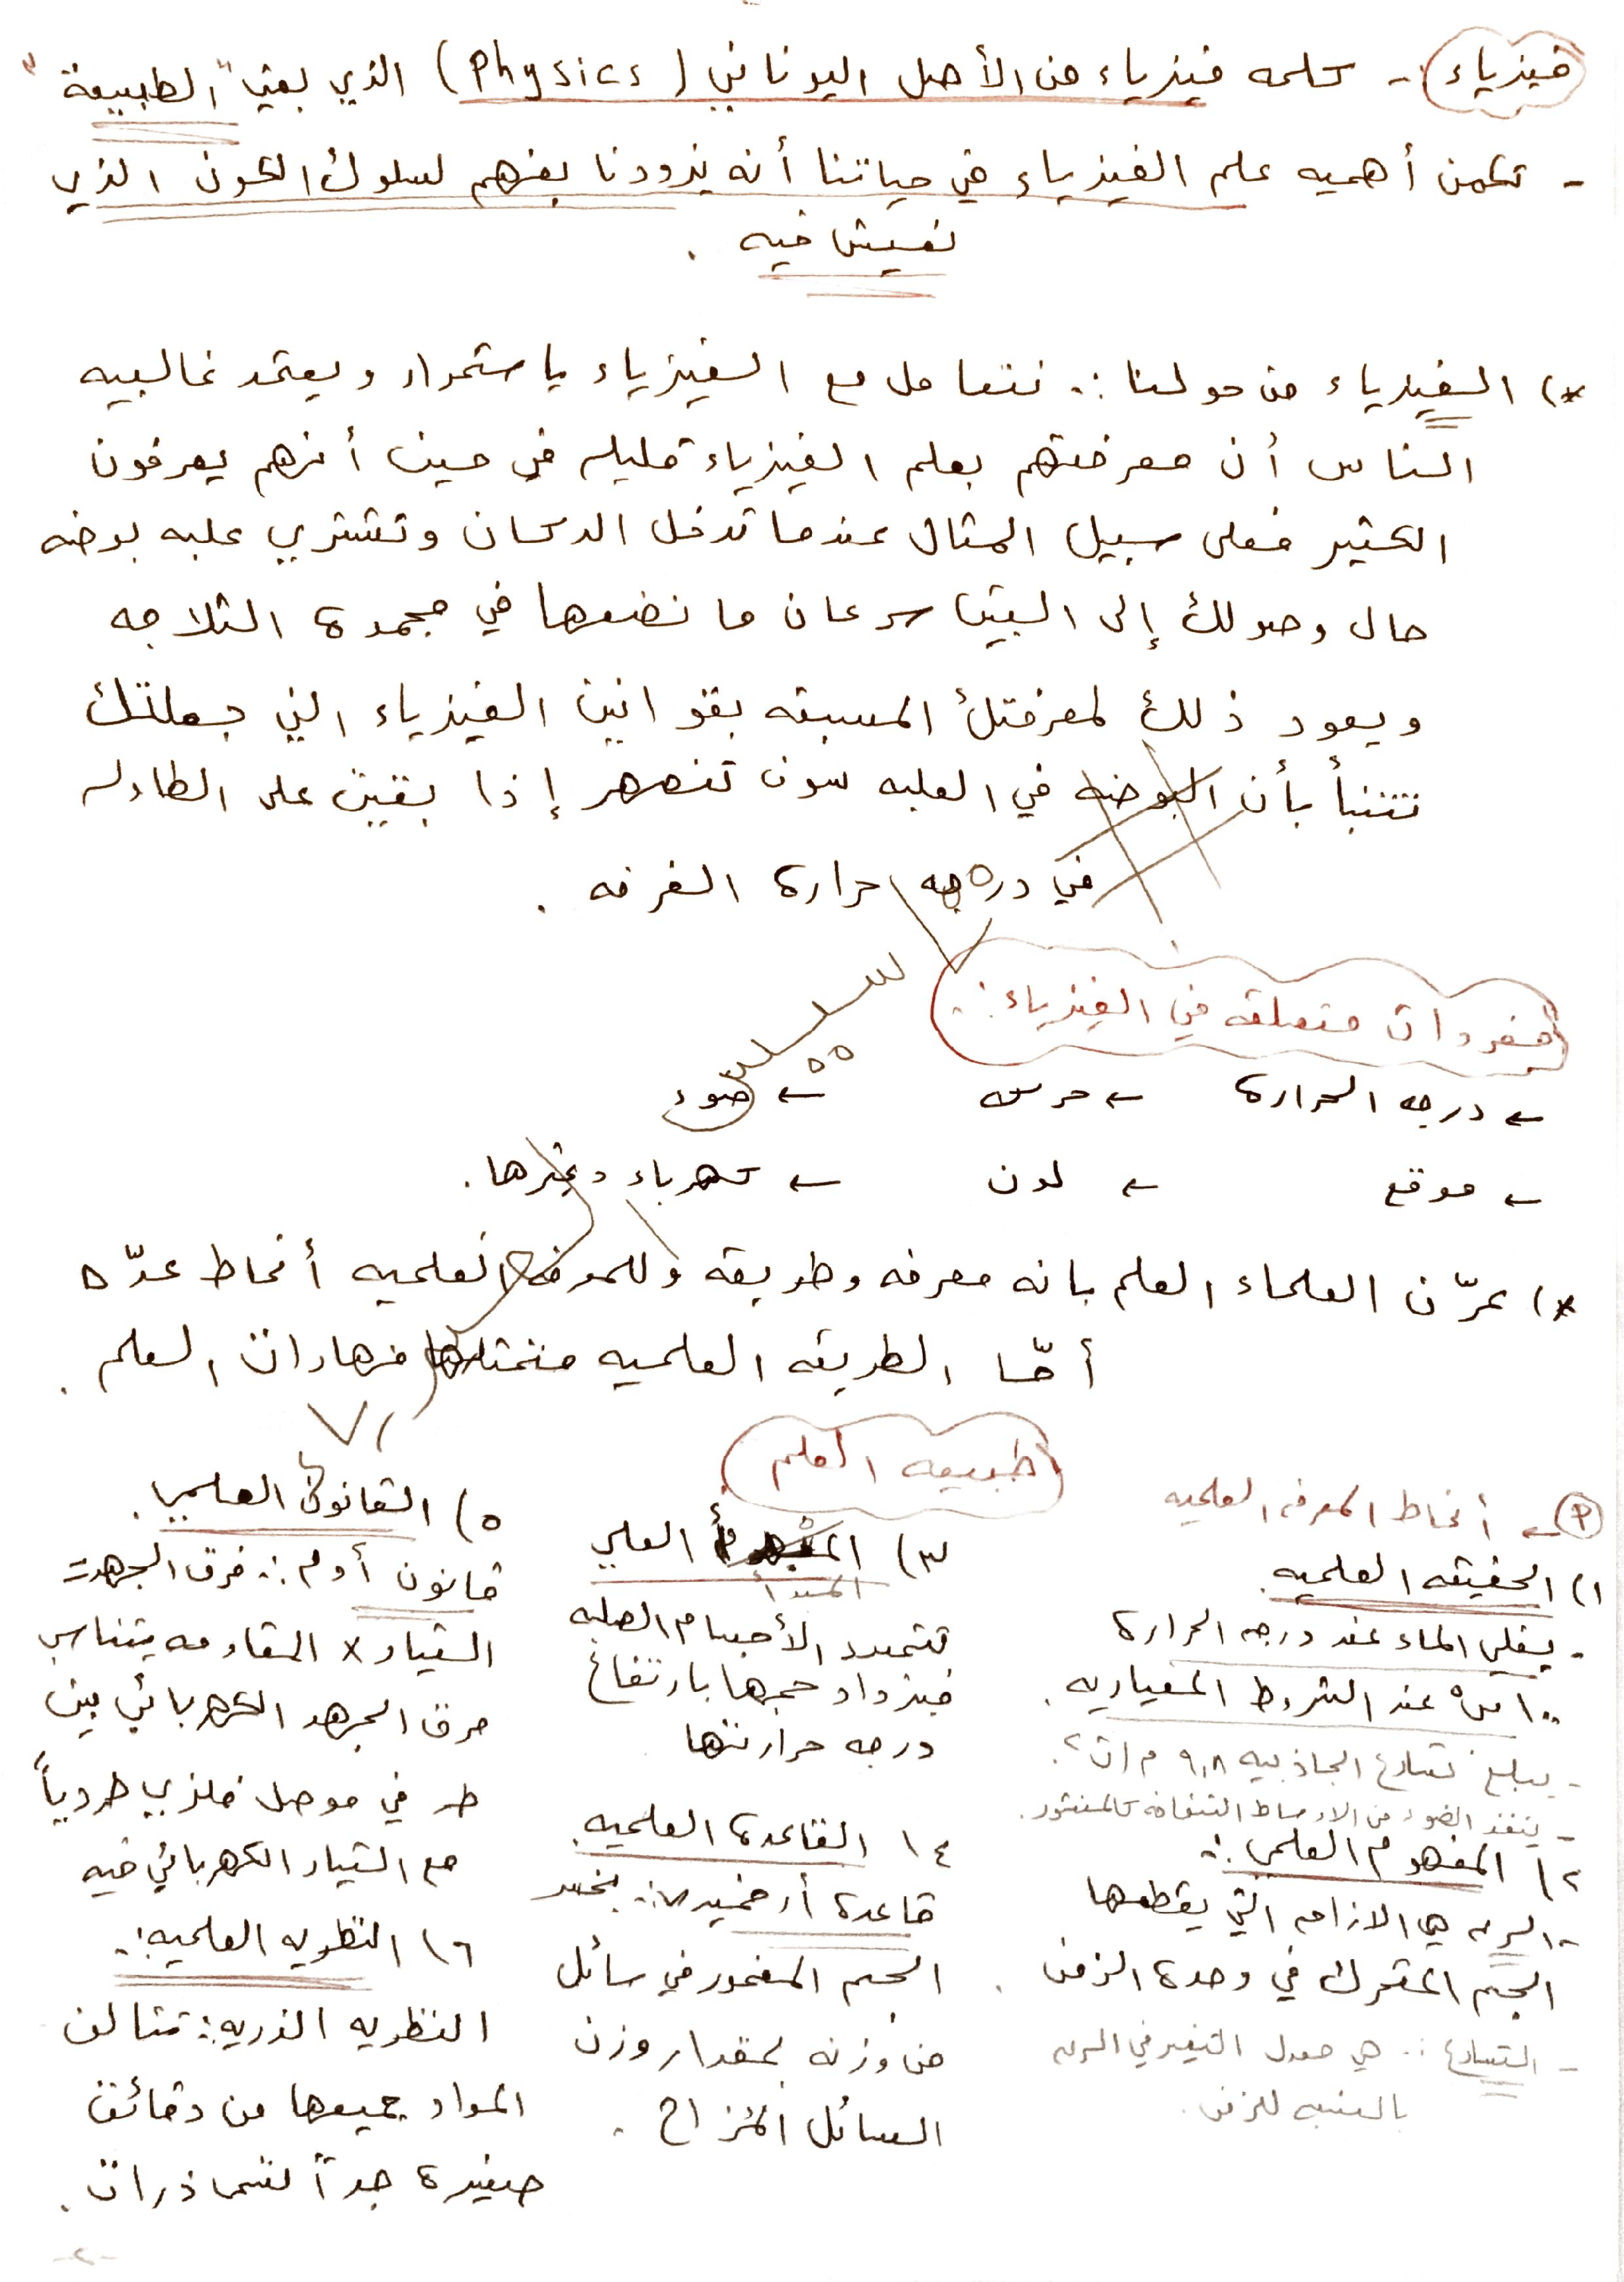 فيزياء :- كلمه فيزياء من الأصل اليوناني (Physics) الذي يعني "الطبيعة"
- تكمن أهميه علم الفيزياء في حياتنا أنه يزودنا بفهم لسلوك الكون الذي
نعيش فيه .
*) الفيزياء من حولنا :. نتعامل مع الفيزياء باستمرار ويعتقد غالبيه
الناس أن معرفتهم بعلم الفيزياء قليله في حين أنهم يعرفون
الكثير فعلى سبيل المثال عندما تدخل الدكان وتشتري علبه بوضه
حال وصولك إلى البيت سرعان ما نضعها في مجمدة الثلاجه
ويعود ذلك لمعرفتك المسبقه بقوانين الفيزياء التي جعلتك
تتنبأ بأن البوضه في العلبه سوف تنصهر إذا بقيت على الطاوله
في درجه حرارة الغرفه .
مفردات متعلقه في الفيزياء :.
← درجه الحرارة ← حركه ← ضوء
← موقع ← لون ← كهرباء وغيرها .
*) عرّف العلماء العلم بانه معرفه وطريقه وللمعرفه العلميه أنماط عدّه
أمّا الطريقه العلميه فتمثلها مهارات العلم .
طبيعه العلم
أ ← أنماط المعرفه العلميه
١) الحقيقه العلميه .
- يغلي الماء عند درجه الحرارة
١٠٠ س° عند الشروط المعياريه .
- يبلغ تسارع الجاذبيه ٩,٨ م/ث٢ .
- ينفذ الضوء من الاوساط الشفافه كالمنشور .
٢) المفهوم العلمي :.
- السرعه هي الازاحه التي يقطعها
الجسم المتحرك في وحدة الزمن .
- التسارع :. هي معدل التغير في السرعه
بالنسبه للزمن .
٣) المبدأ العلمي
المبدأ
تتمدد الأجسام الصلبه
فيزداد حجمها بارتفاع
درجه حرارتها
٤) القاعدة العلميه .
قاعدة أرخميدس :. يخسر
الجسم المغمور في سائل
من وزنه بمقدار وزن
السائل المُزاح .
٥) القانون العلمي .
قانون أوم :. فرق الجهد =
التيار x المقاومه يتناسب
فرق الجهد الكهربائي بين
ط في موصل فلزي طردياً
مع التيار الكهربائي فيه
٦) النظريه العلميه :.
النظريه الذريه :. تتالف
المواد جميعها من دقائق
صغيرة جداً تسمى ذرات .
-٢-